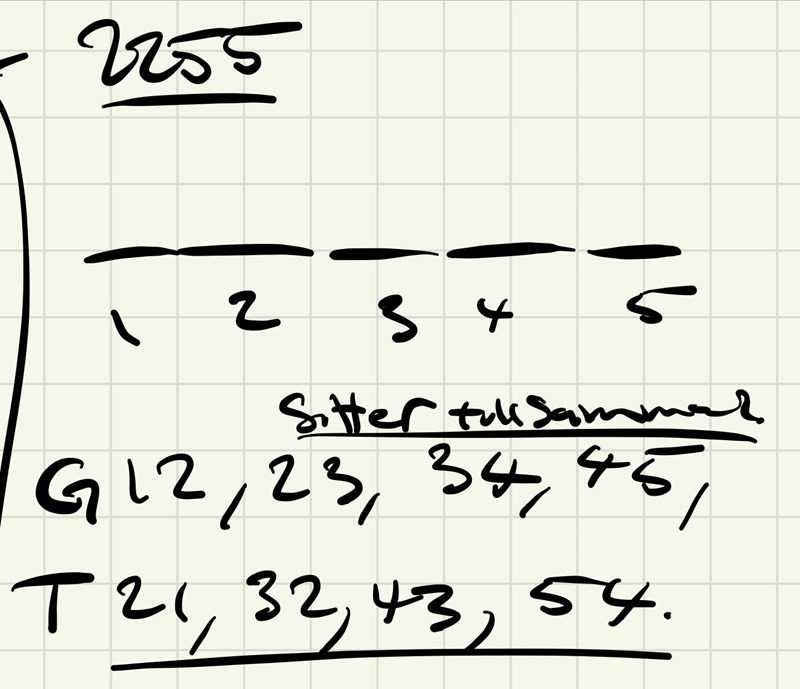 2255
1 2 3 4 5
Sitter tillsammans
G 12, 23, 34, 45,
T 21, 32, 43, 54.